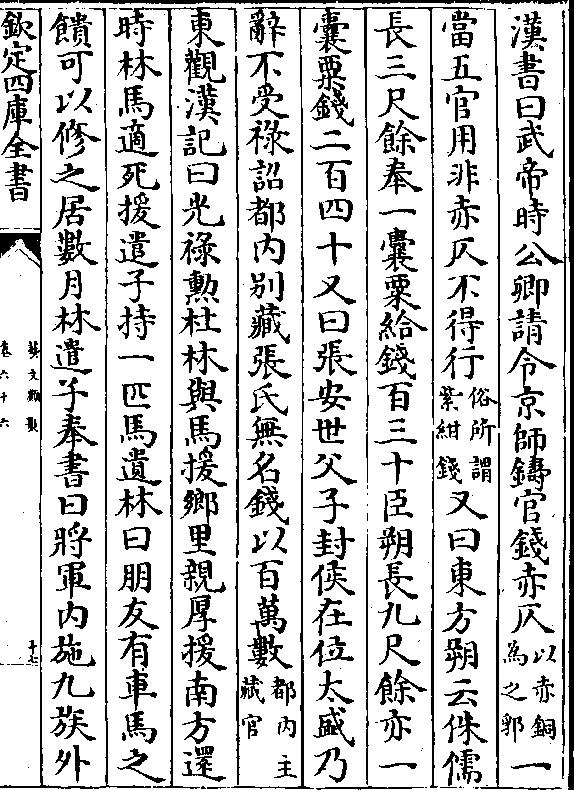 漢書曰武帝時公卿請令京師鑄官錢赤仄以赤銅為之郭一
當五官用非赤仄不得行俗所謂紫紺錢又曰東方朔云侏儒
長三尺餘奉一囊粟給錢百三十臣朔長九尺餘亦一
囊粟錢二百四十又曰張安世父子封侯在位太盛乃
辭不受祿詔都內别藏張氏無名錢以百萬數都內主藏官
東觀漢記曰光祿勲杜林與馬援鄉里親厚援南方還
時林馬適死援遣子持一匹馬遺林曰朋友有車馬之
饋可以修之居數月林遣子奉書曰將軍內施九族外
欽定四庫全書
藝文類聚
卷六十六
十七